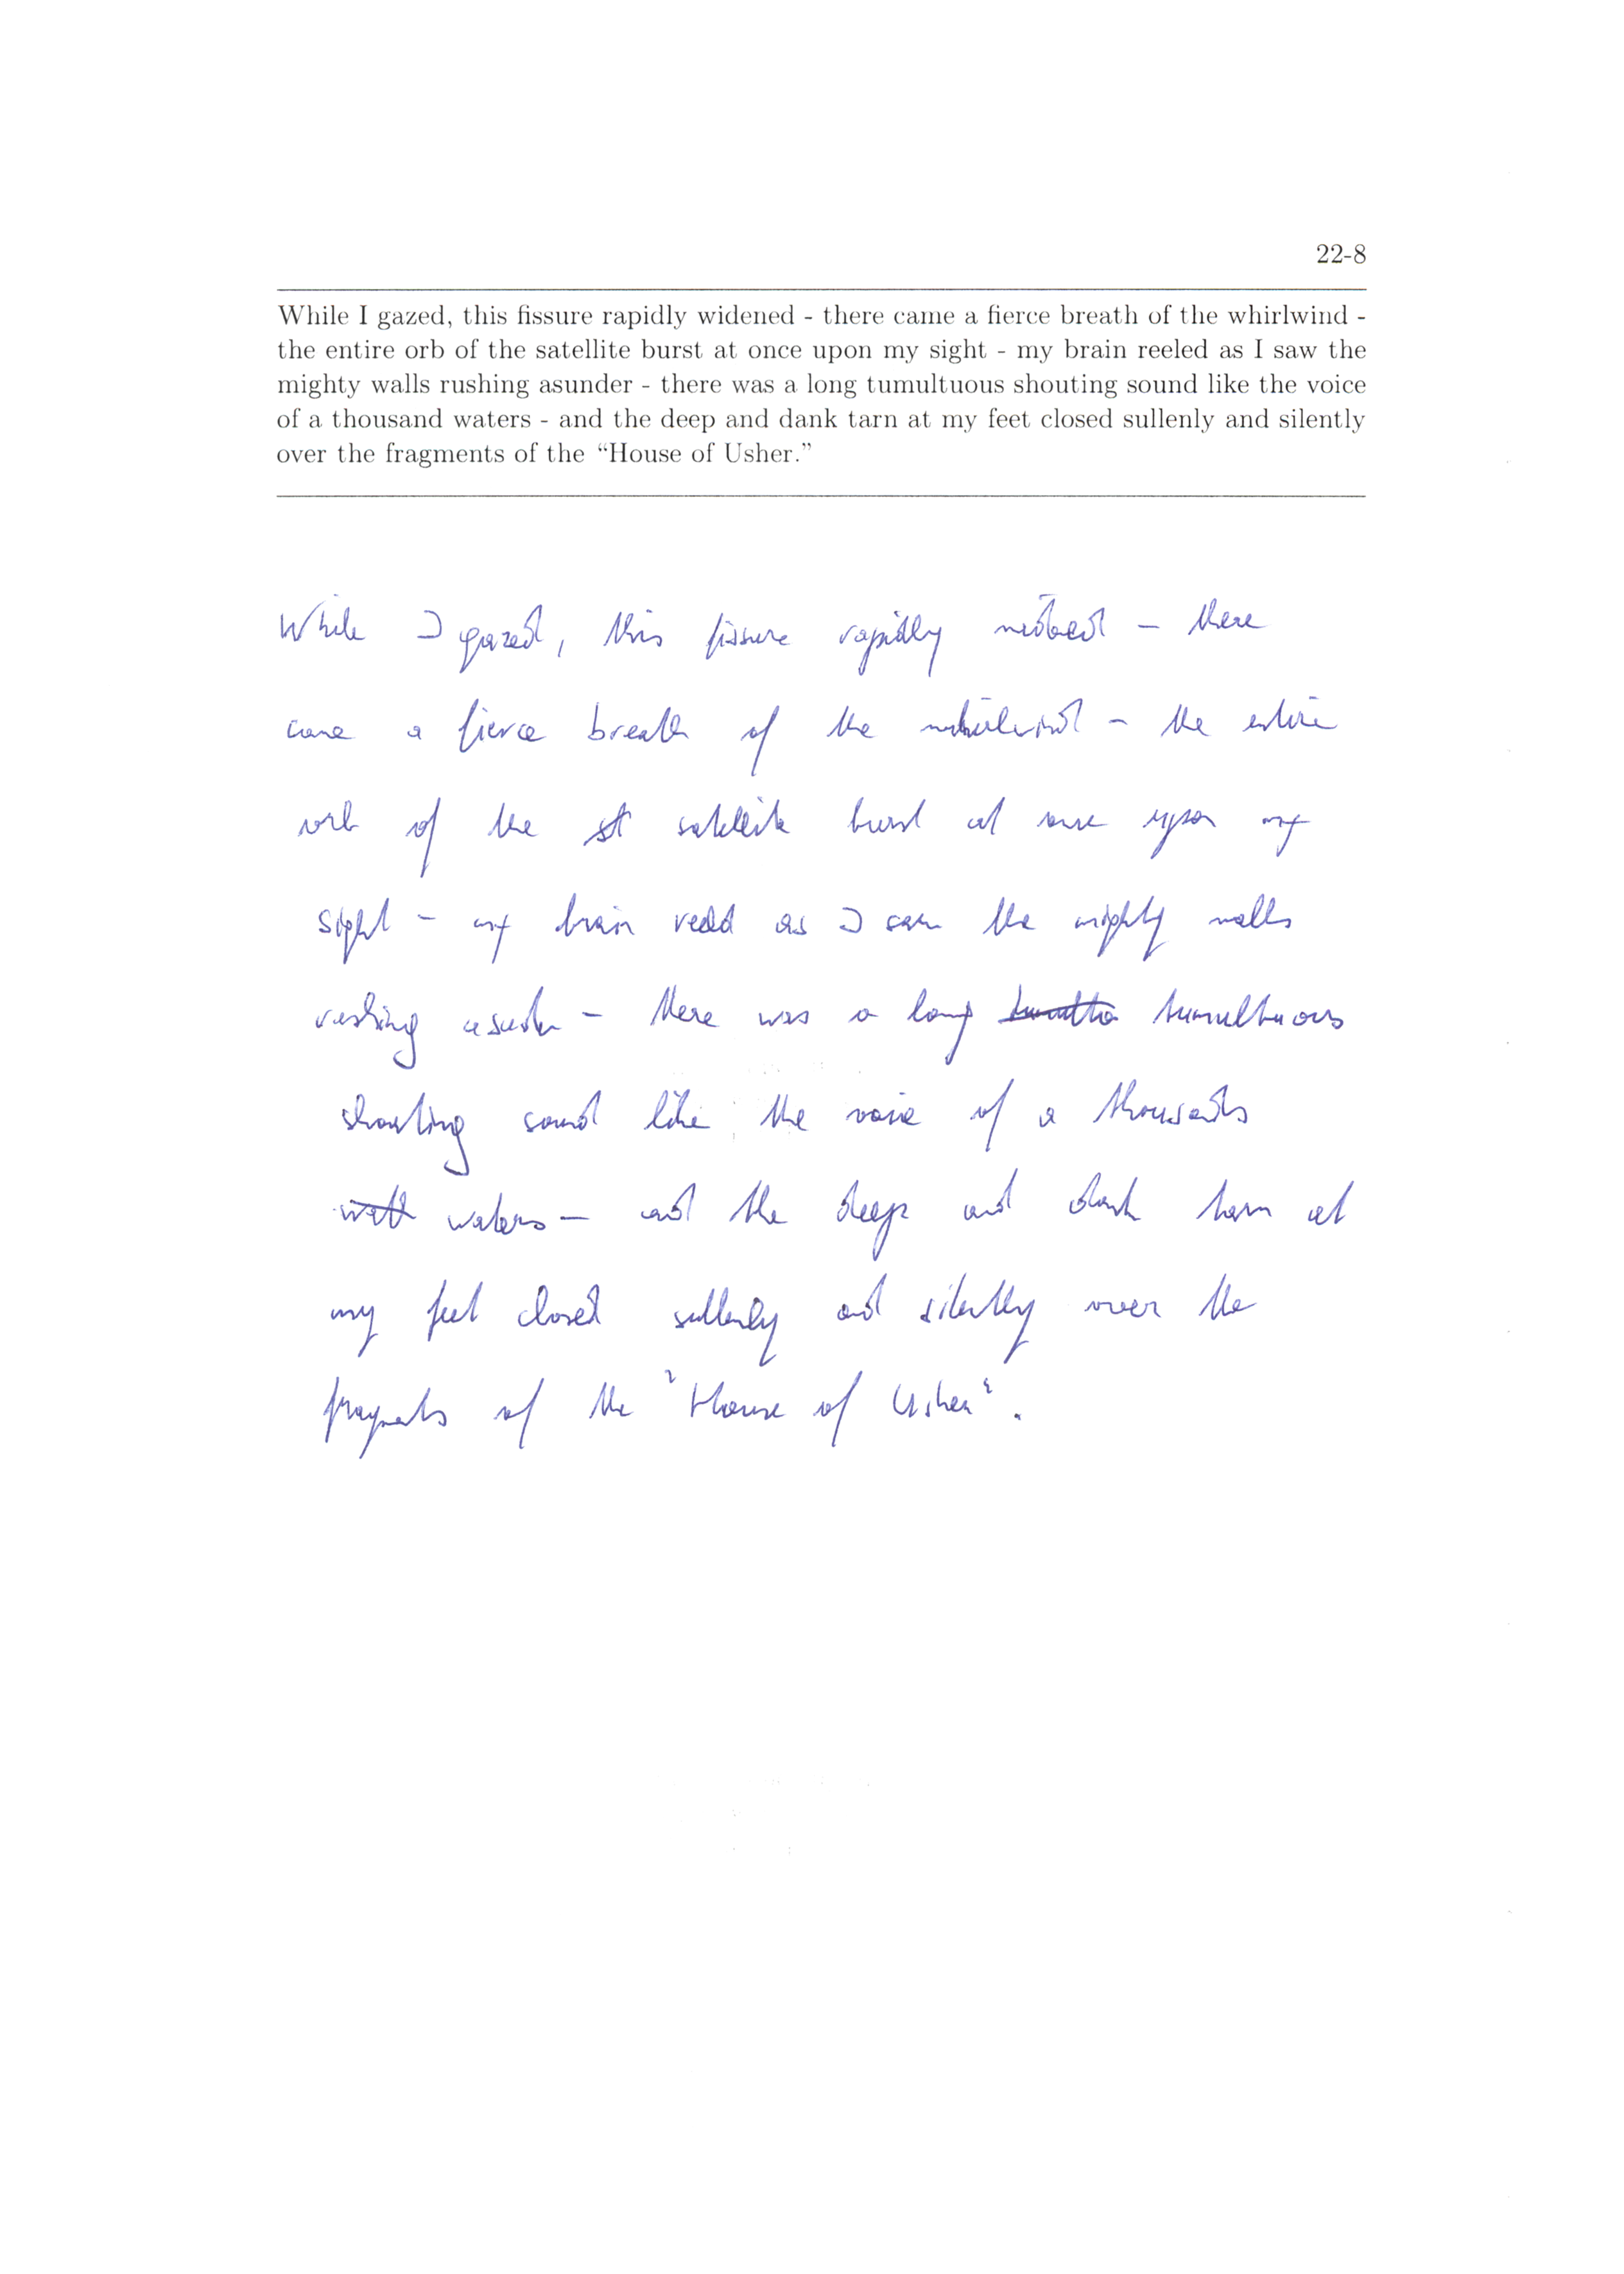 22-8
While I gazed, this fissure rapidly widened - there came a fierce breath of the whirlwind -
the entire orb of the satellite burst at once upon my sight - my brain reeled as I saw the
mighty walls rushing asunder - there was a long tumultuous shouting sound like the voice
of a thousand waters - and the deep and dank tarn at my feet closed sullenly and silently
over the fragments of the “House of Usher.”
While I gazed, this fissure rapidly widened - there
came a fierce breath of the whirlwind - the entire
orb of the st satellite burst at once upon my
sight - my brain reeled as I saw the mighty walls
rushing asunder - there was a long tumultuous
shouting sound like the voice of a thousands
waters - and the deep and dank tarn at
my feet closed sullenly and silently over the
fragments of the "House of Usher".